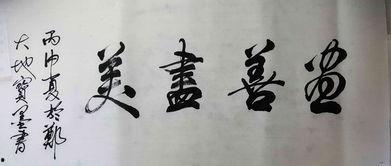 盡善盡美
丙申夏於鄭
大地寶墨書